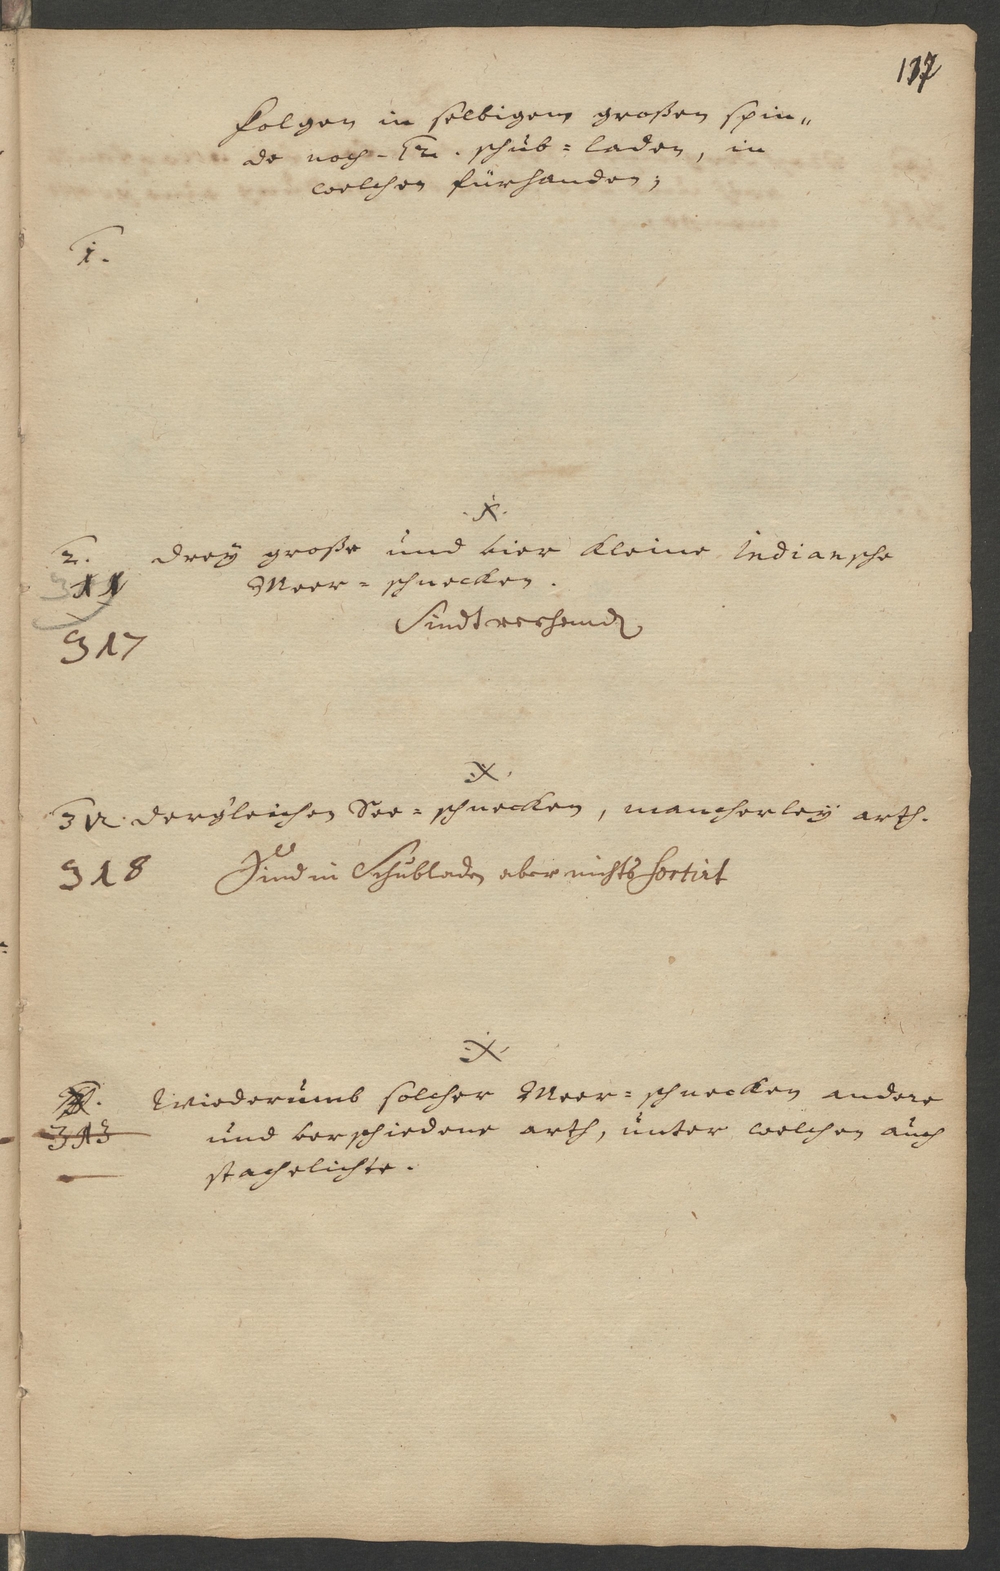 Folgen in selbigem großen spin„
de noch - 12. schub = laden, in
welchen fürhanden;
1.
2. Dreÿ große und vier kleine Indiansche
Meer = schnecken.
Sindt verhand
317
3 Dergleichen See = schnecken, mancherleÿ arth.
318 Sind in Schubladen aber nichts sortirt
Wiederumb solcher Meer = schnecken andere
313 und verschiedene arth, unter welchen auch
stachelichte.